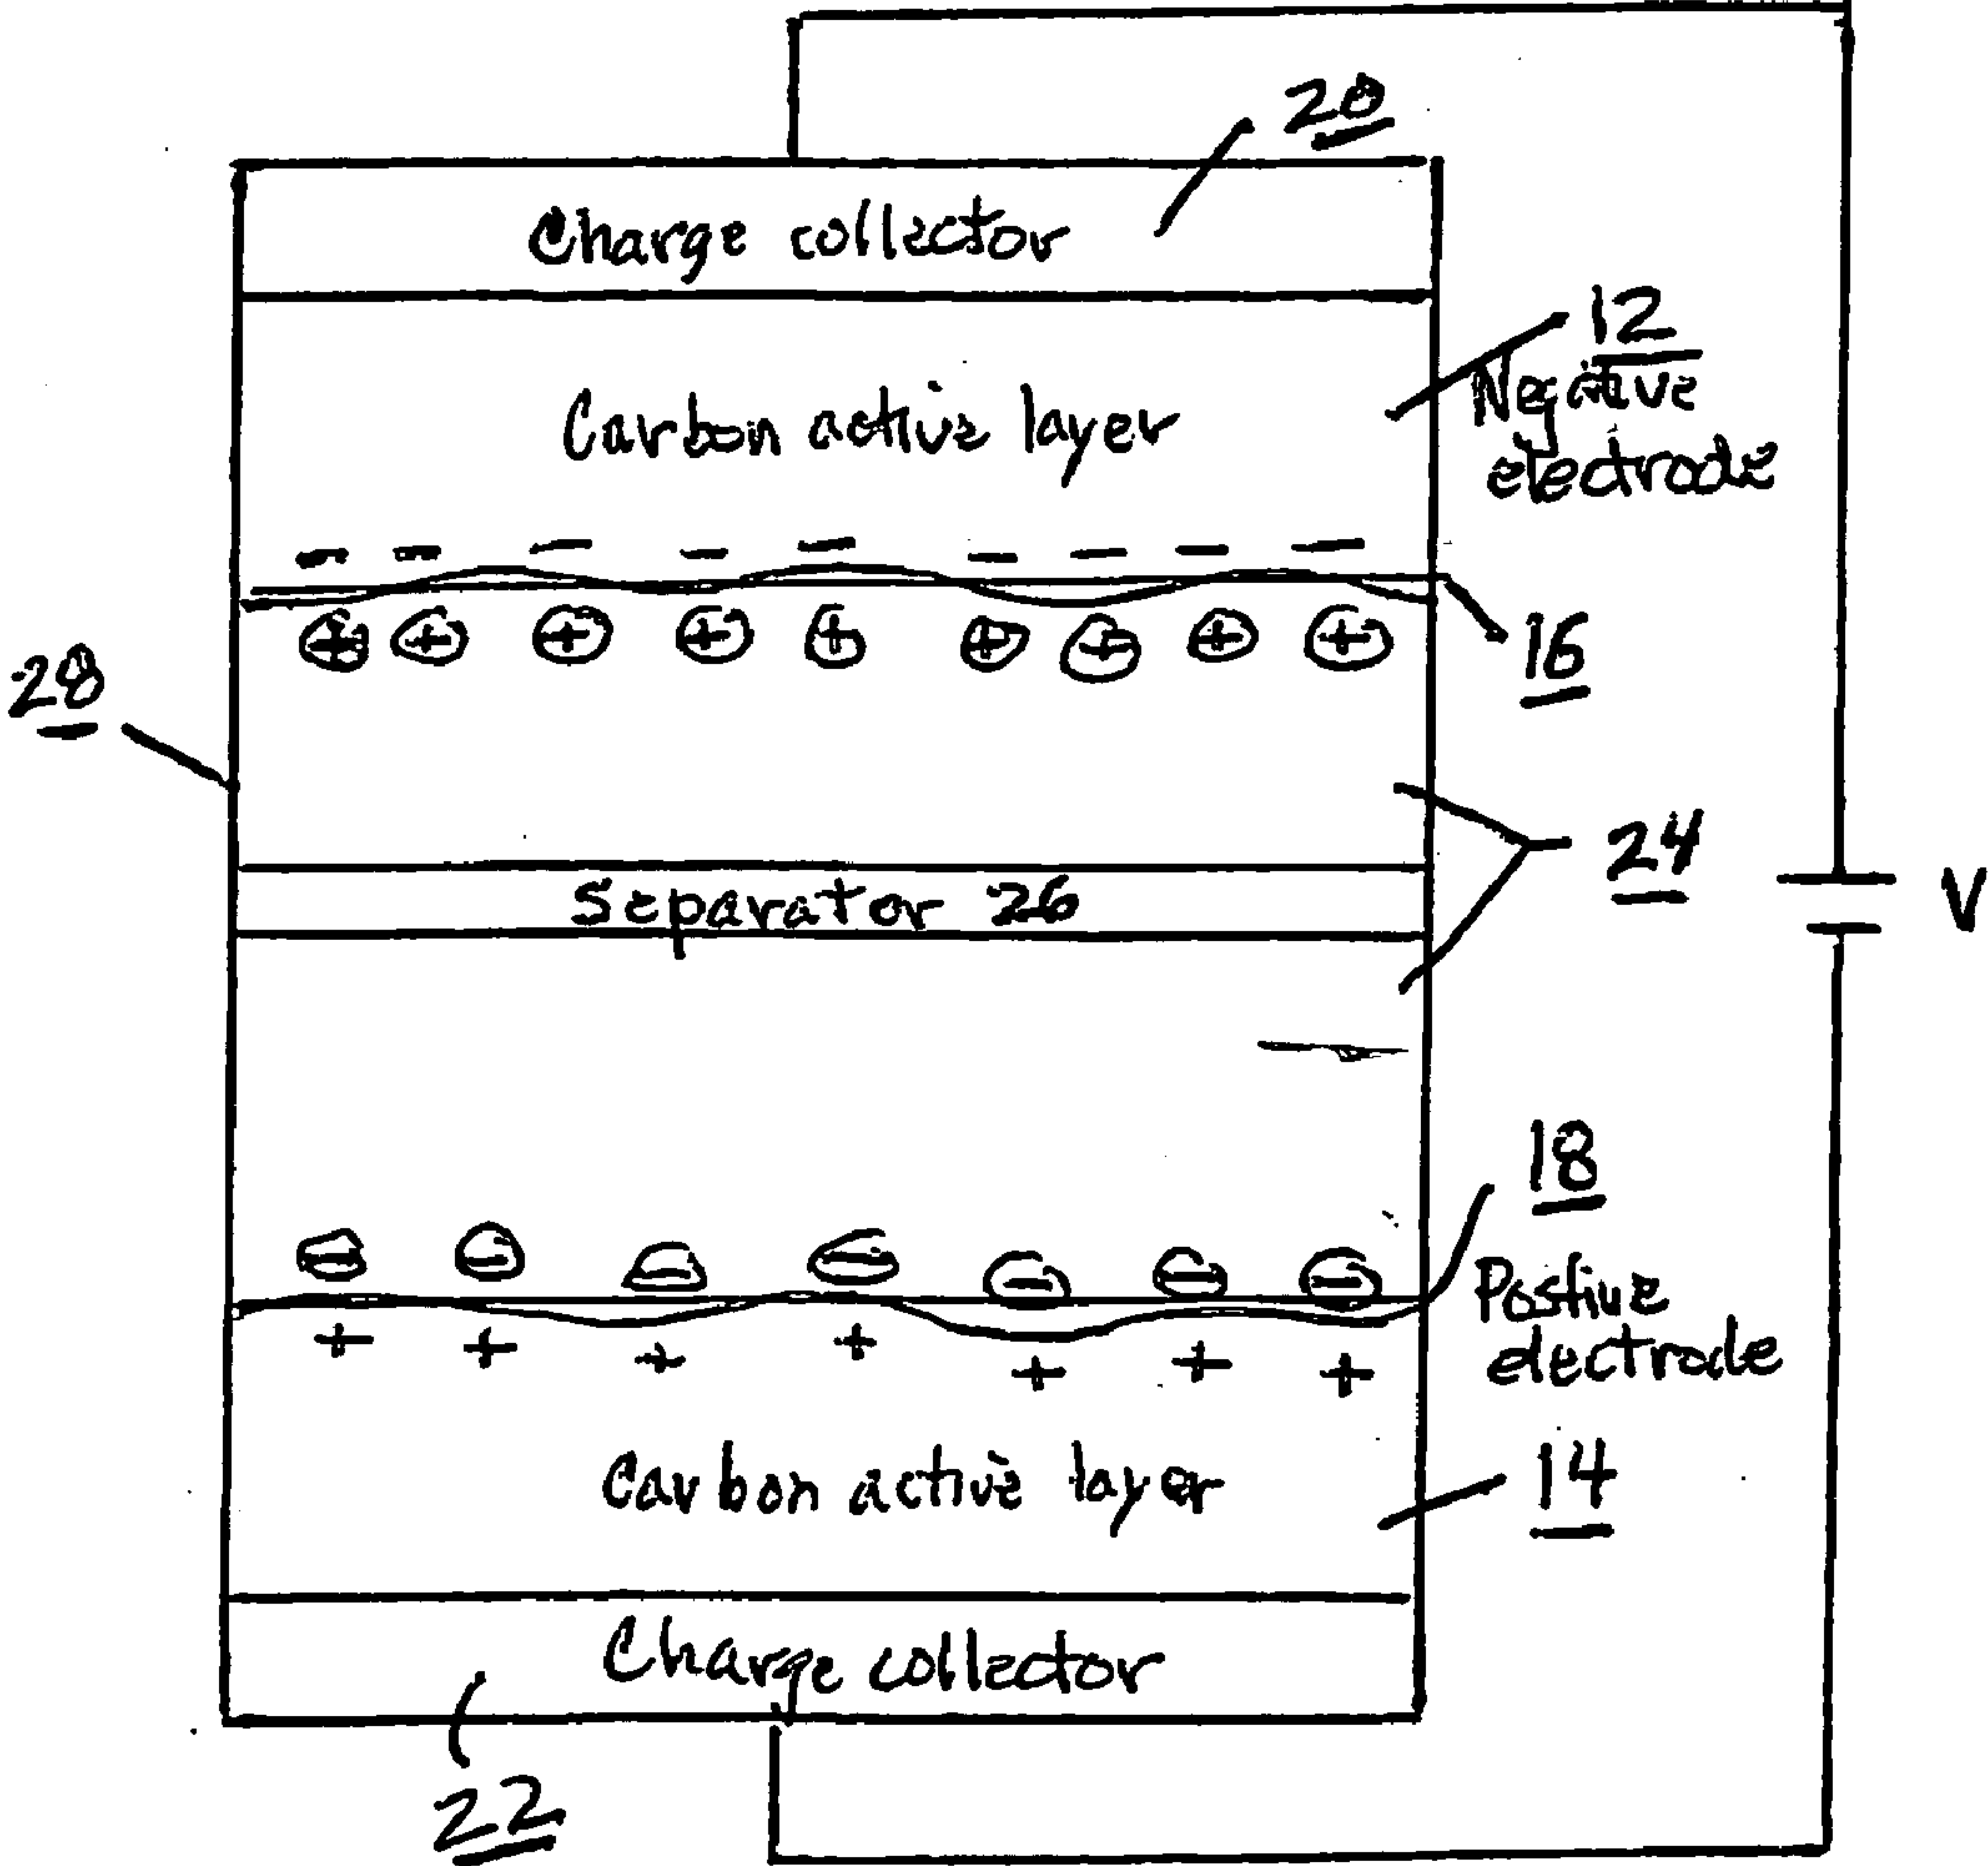 20
Charge collector
12
Negative
electrode
Carbon active layer
- - - - - - - - -
+ + + + + + + + +
16
28
24
Separator 26
V
18
- - - - - - -
Postiue
electrode
+ + + + + + +
Carbon active layer
14
Charge collector
22